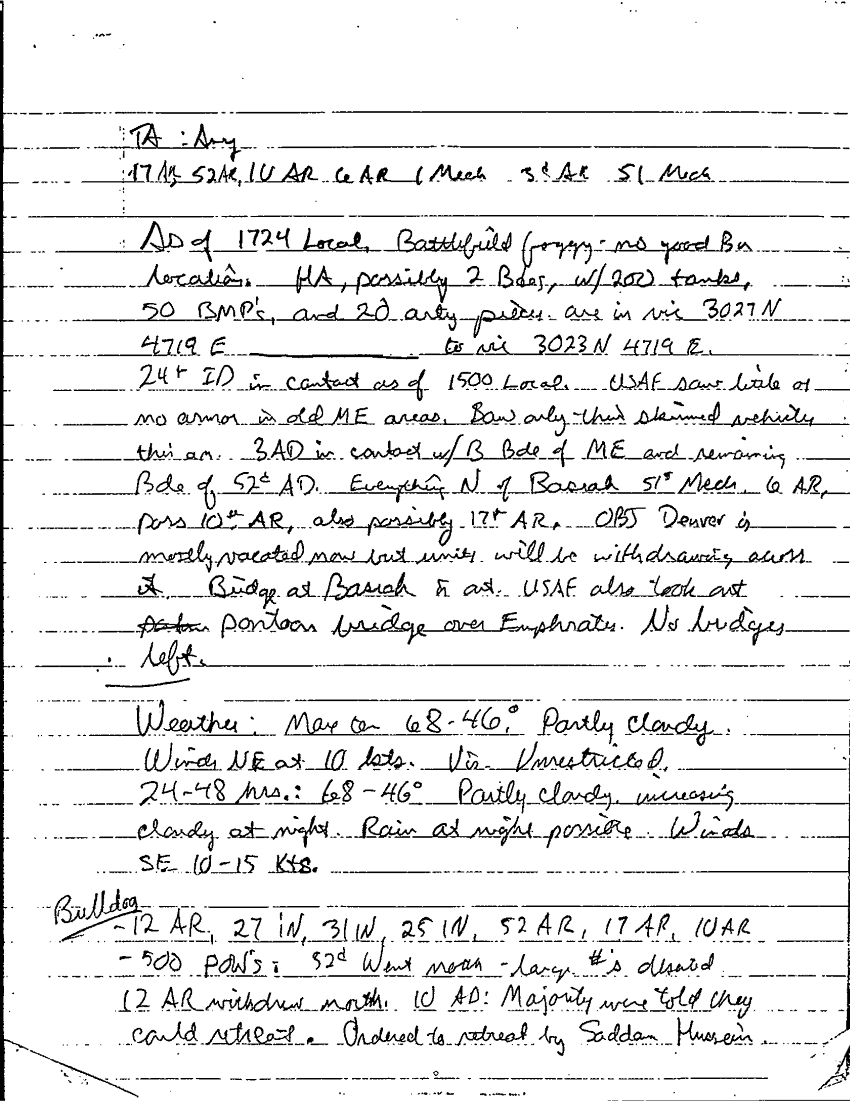 TA : Avg
17 AR, 52 AR, 10 AR 6 AR 1 Mech 3d AR 51 Mech
As of 1724 Local. Battlefield foggy - no good Bn
location. HA, possibly 2 Bdes, w/200 tanks,
50 BMP's, and 20 arty pieces are in vic 3027 N
4719 E ____________ to vic 3023 N 4719 E.
24th ID in contact as of 1500 Local. USAF saw little or
no armor in old ME areas. Saw only thin skinned vehicles
this am. 3AD in contact w/ B Bde of ME and remaining
Bde of 52d AD. Everything N of Basrah 51st Mech, 6 AR,
poss 10th AR, also possibly 17th AR. OBJ Denver is
mostly vacated now but units will be withdrawing across
it. Bridge at Basrah is out. USAF also took out
pontoon bridge over Euphrates. No bridges
left.
Weather: Max 68-46°. Partly cloudy.
Winds NE at 10 kts. Vis - Unrestricted.
24-48 hrs.: 68-46° Partly cloudy, increasing
cloudy at night. Rain at night possible. Winds
SE 10-15 Kts.
Bulldog
-12 AR, 27 IN, 31 IN, 25 IN, 52 AR, 17 AR, 10 AR
- 500 POW's: 52d Went north - large #'s desert
12 AR withdrew north. 10 AD: Majority were told they
could retreat. Ordered to retreat by Saddam Hussein.